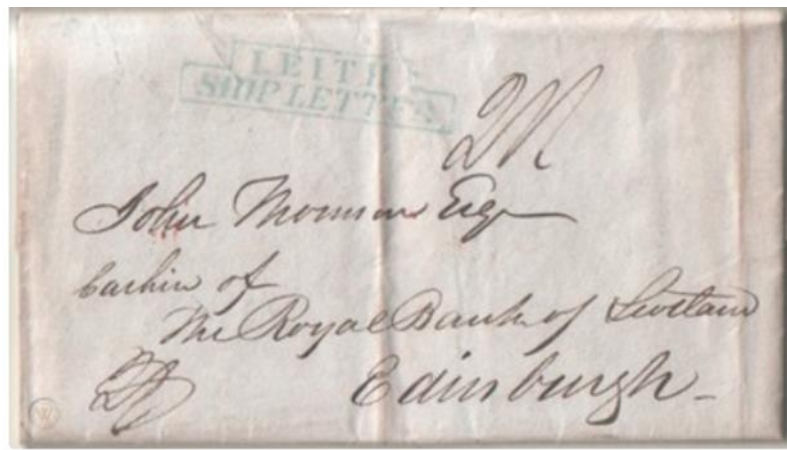 LEITH
SHIP LETTER
John Thomson Esq
Cashier of
The Royal Bank of Scotland
Edinburgh